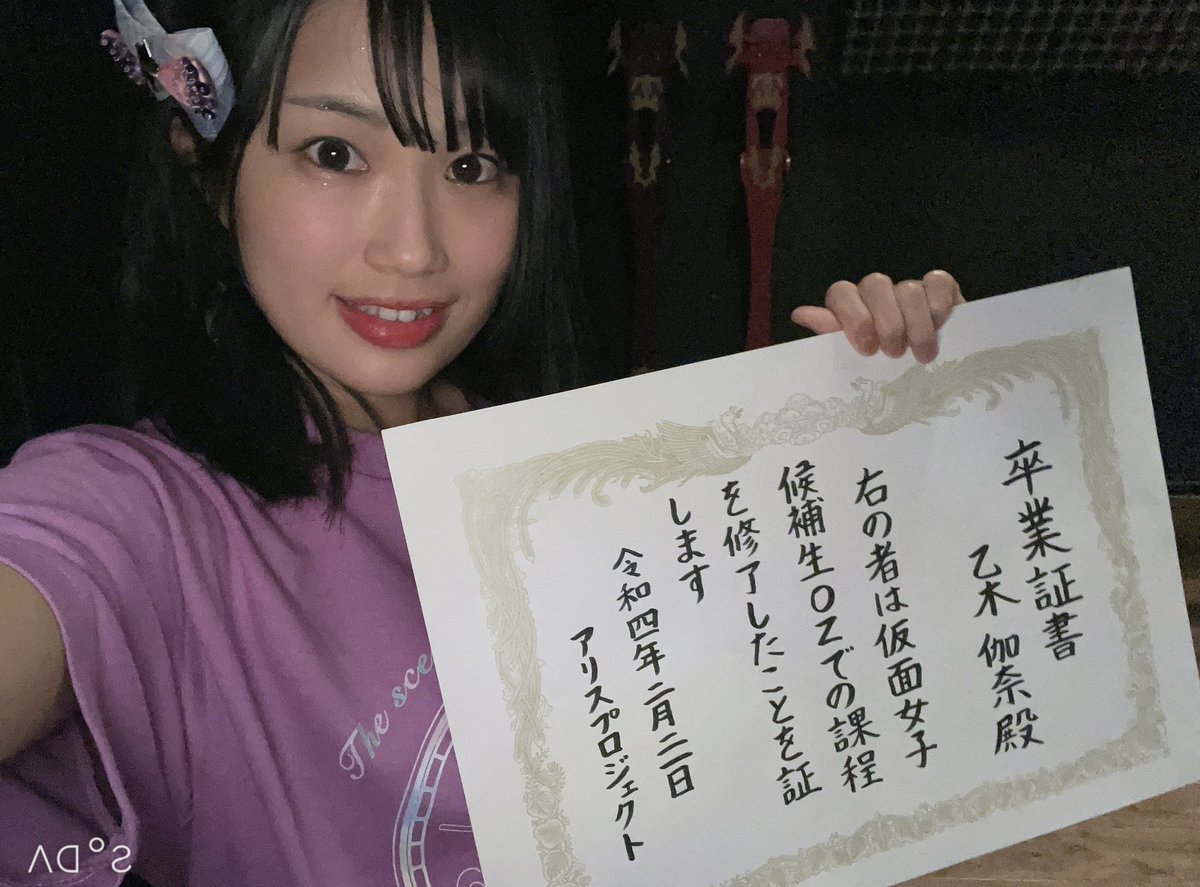 卒業証書
乙木 伽奈殿
右の者は仮面女子
候補生OZでの課程
を修了したことを証
します
令和四年二月二一日
アリスプロジェクト
The
S°DA